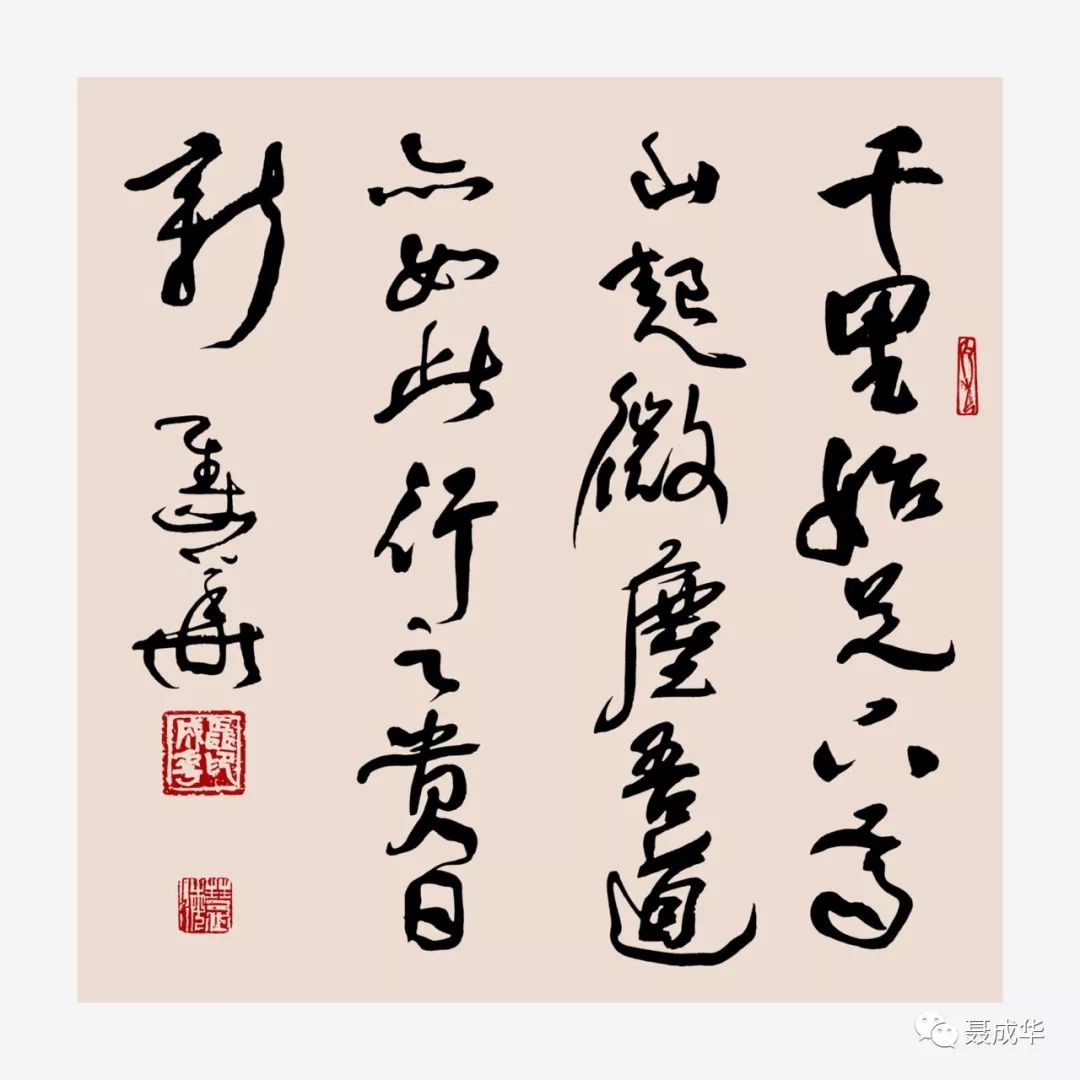 千里始足下高
山起微塵吾道
亦如此行之貴日
新
聶印成華
聂成华